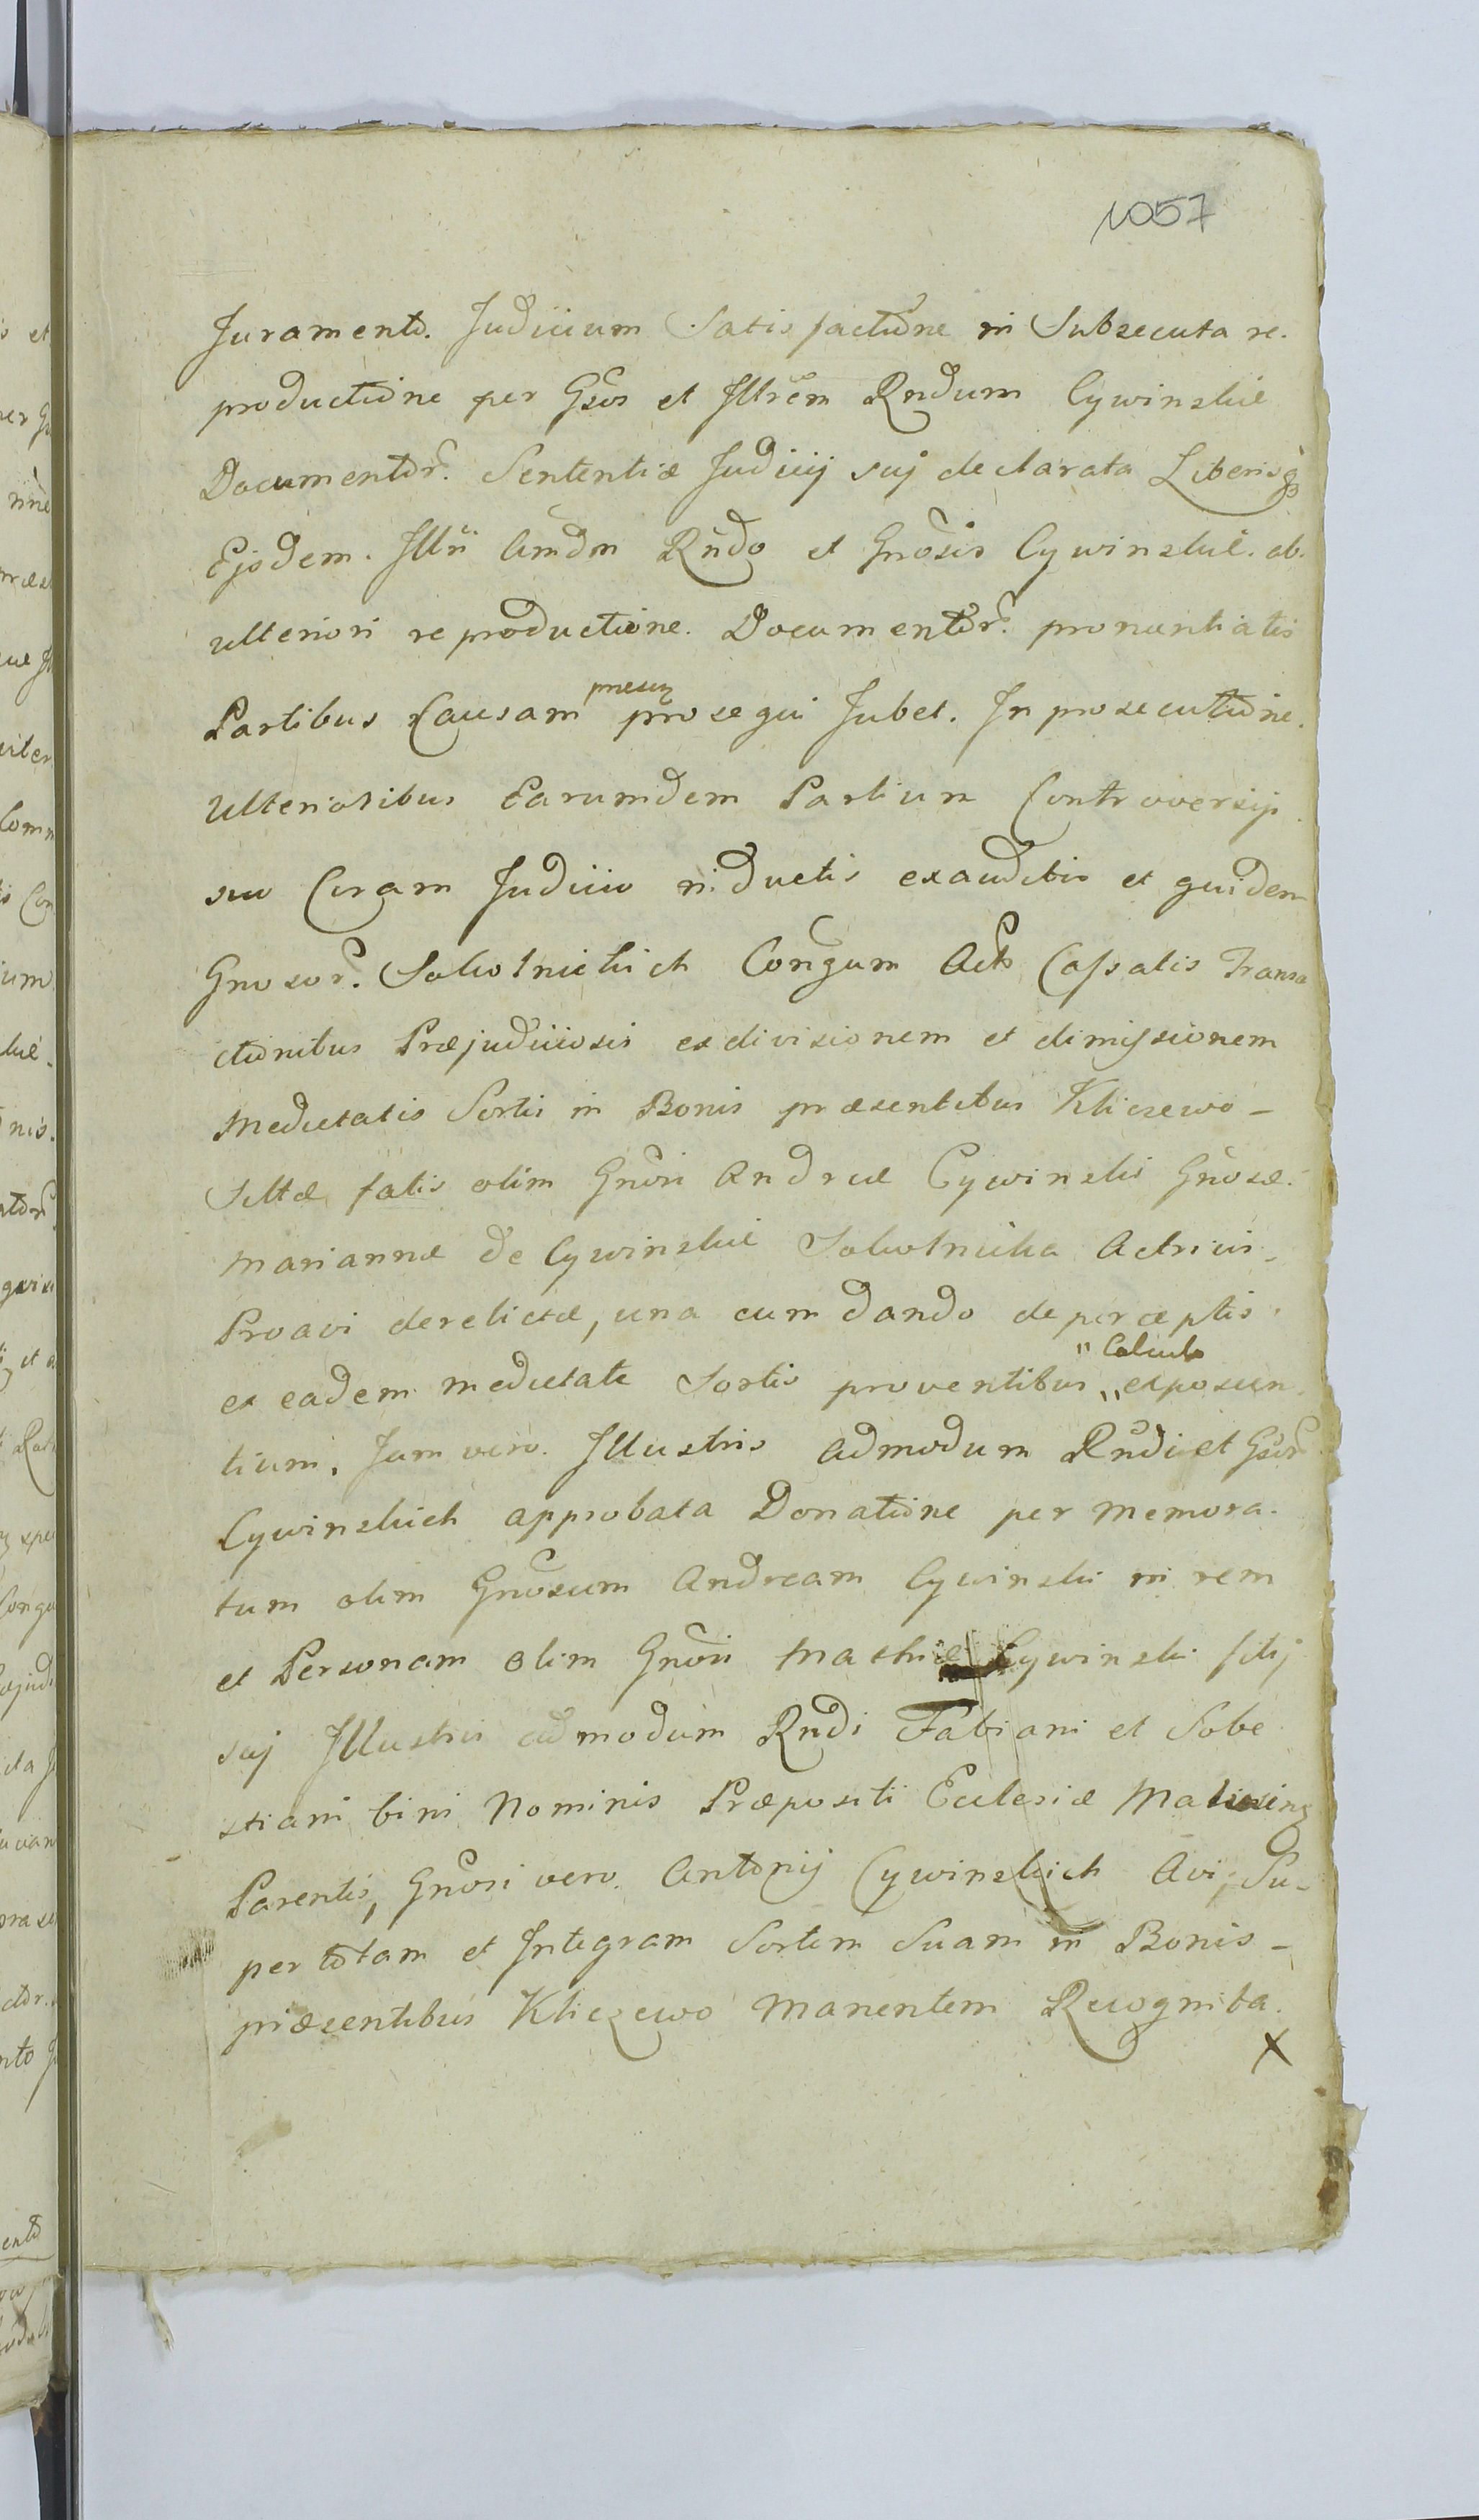 1057
Juramento. Judicium Satisfactione in Subsecuta re-
productione per Gsos et Illrem Rndum Cywinskie
Documentor. Sententiæ Judicij suj declarata Liberisq
Ejsdem. Illri Amdm Rndo et Gnosis Cywinskie. ab.
ulteriori reproductione. Documentor. pronuntiatis
Partibus Causam præsen prosequi Jubet. In prosecutione.
Ulterioribus Earumdem Partium Controversijs
suo Coram Judicio inductis exauditis et quidem
Gnosor. Sokolnickich Congum Act Cassatis Transa
ctionibus Præjudiciosis exdivisionem et dimissionem
Medietatis Sortis in Bonis præsentibus Kliczewo-
Sittæ fatis olim Gnosi Andreæ Cywinski Gnosæ.
Mariannæ de Cywinskie Sokolnicka Actricis.
Proavi derelictæ, una cum dando de perceptis
ex eadem medietate Sortis proventibus " Calculo exposcen
tium. Jam vero. Illustris admodum Rndi et Gsor
Cywinskich approbata Donatione per memora-
tum olim Gnosum Andream Cywinski in rem
et Personam olim Gnosi Mathiæ Cywinski filij
suj Illustris admodum Rndi Fabiani et Sebe
stiani bini Nominis Præpositi Ecclesiæ
Parentis, Gnosi vero. Antonij Cywinskich Avi, Su-
per totam et Integram Sortem Suam in Bonis-
præsentibus Kliczewo manentem Recognita.
x